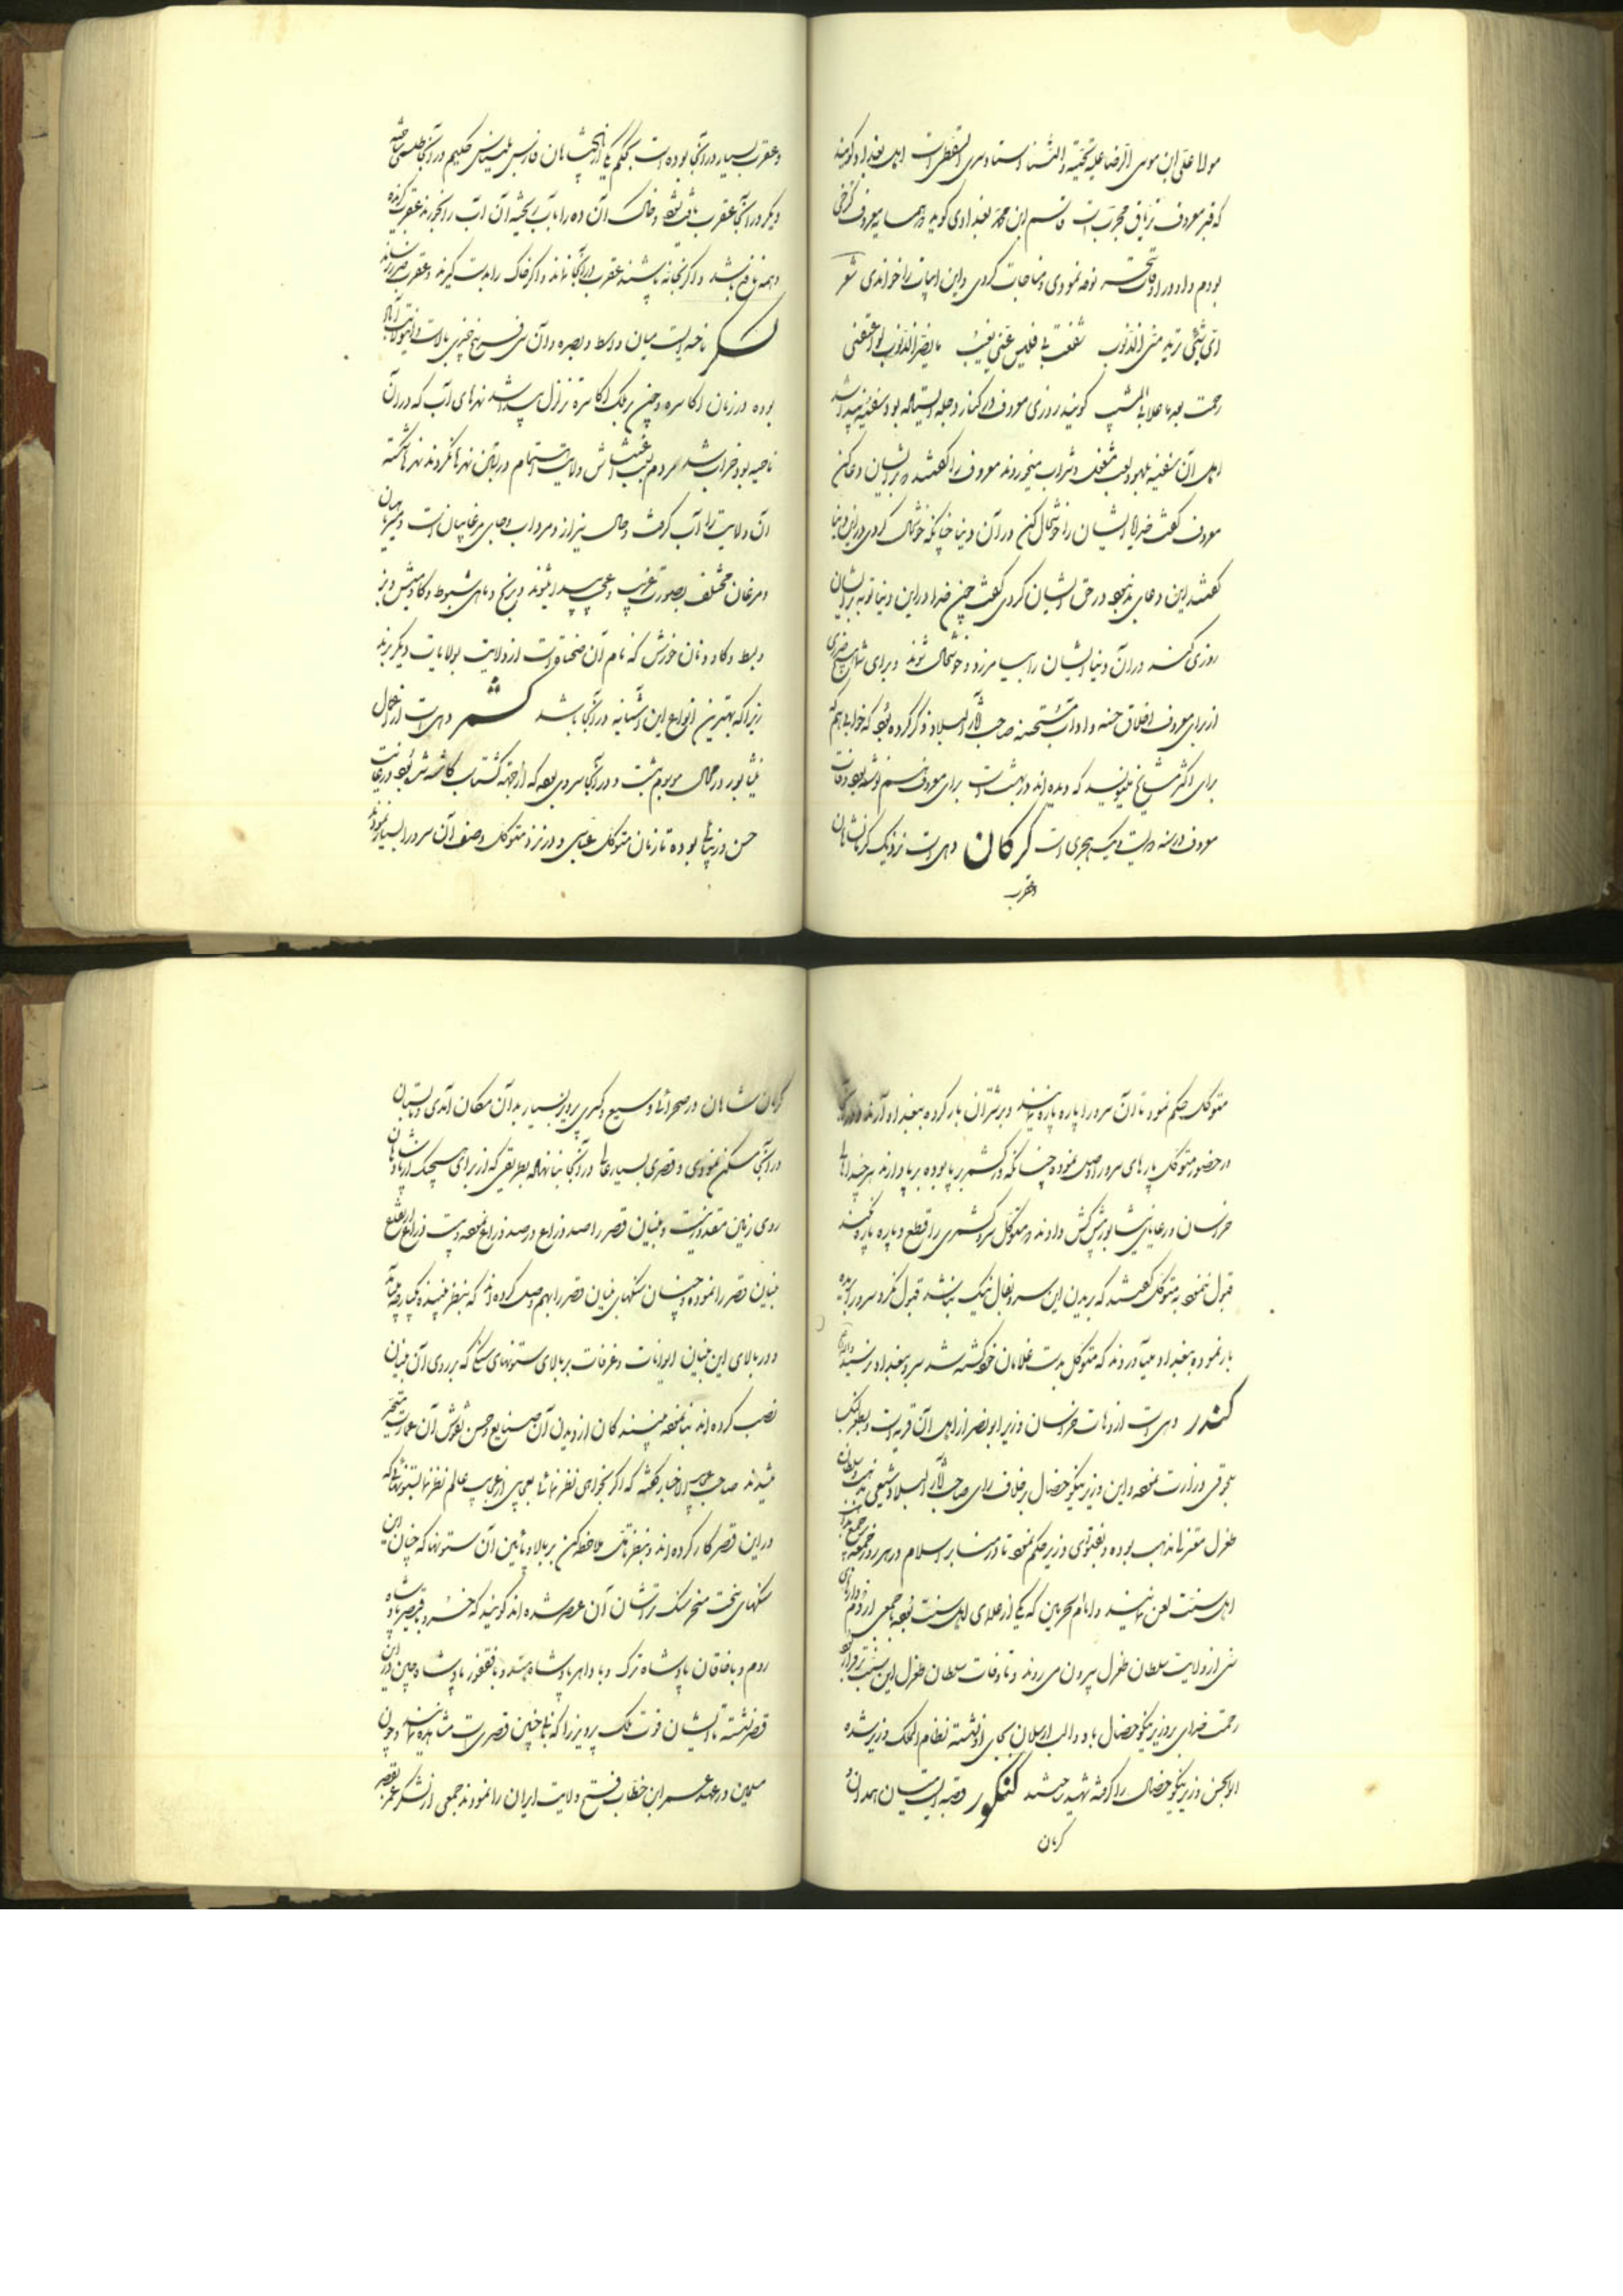 مولا علی ابن موسی الرضا علیه التحیة والثنا و استاد سری السقطی است اهل بغداد گویند
که قبر معروف تریاق مجرب است قاسم ابن محمد بغدادی گوید همسایه معروف کرخی
بودم و او در اوقات سحر نوحه نمودی و مناجات کردی و این ابیات را خواندی شعر
ای شیئی ترید منی الذنوب شغفت بی فلیس عنی تغیب ما یضر الذنوب لو اعتقتنی
رحمت بعد ما علا بی المشیب گویند روزی معروف در کنار دجله ایستاده بود سفینه پیدا شد
اهل آن سفینه بلهو و لعب مشغول و شراب میخوردند معروف را گفتند بر ایشان دعا کن
معروف گفت خدایا ایشان را خوشحال کن در آن دنیا چنانکه خوشحال کردی در این دنیا
گفتند این دعای بد نبود در حق ایشان کردی گفت چون خدا در این دنیا توبه بر ایشان
روزی کند در آن دنیا ایشان را بیامرزد و خوشحال شوند و برای شما ضرری
از برای معروف اخلاق حسنه و آداب مستحسنه صاحب آثار البلاد ذکر کرده بود که خوابی هم که
برای اکثر مشایخ میگویند که دیده اند در بهشت است برای معروف هم نوشته بود وفات
معروف در سنه دویست و یک هجری است کرکان دهی است نزدیک کرمانشاهان
و عقرب
و عقرب بسیار در آنجا بوده است بحکم یکی از پادشاهان فارس بلیناس حکیم در آنجا طلسمی ساخته
دیگر در آنجا عقرب یافت نشود و خاک آن ده را با آب ریخته آن آب را بخورند عقرب گزیده
دهند نافع باشد و اگر بخانه پاشند عقرب در آنجا نماند و اگر خاک را بدست گیرند و عقرب ضرر نرساند
کسکر ناحیه ایست میان واسط و بصره و آن سی فرسخ در چیزی بالا است و این ولایت آباد
بوده در زمان اکاسره و چون بر ملک اکاسره تزلزل پیدا شد نهرهای آب که در آن
ناحیه بود خراب شد مردم بسبب اغتشاش ولایت اهتمام در بستن نهرها نکردند نهرها شکسته
آن ولایت را آب گرفت و حال نیزار و مرداب و جای مرغابیان است
و مرغان مختلف بصورت غریب و عجیب پیدا میشوند و برنج و ماهی شبوط و گاومیش و بز
و بط و گاو و نان خورش که نام آن صحناة است از ولایت بولایات دیگر برند
زیرا که بهترین انواع این اشیا نیز در آنجا باشد کشمر دهی است از اعمال
نیشابور در حال موجود هست و در آنجا سروی بود که از جهة گشتاسب کاشته شده بود در غایت
حسن و زیبائی بوده تا زمان متوکل عباسی و در نزد متوکل وصف آن سرو را بسیار نمودند
متوکل حکم نمود تا آن سرو را پاره پاره نمایند و بر شتران بار کرده ببغداد آورند و در آنجا
در حضور متوکل پارهای سرو را وصل نموده چنانکه در کشمر بر پا بوده بر پا دارند هر چند اهالی
خراسان و رعایای نیشابور پیش کش دادند که متوکل سرو کشمری را قطع و پاره پاره نکنند
قبول ننمود به متوکل گفتند که بریدن این سرو بفال نیک نباشد قبول نکرد سرو را بریده
بار نموده ببغداد میآوردند که متوکل بدست غلامان خود کشته شد سرو ببغداد نرسید
کندر دهی است از دهات خراسان وزیر ابو نصر از اهل آن قریه است
سلجوقی وزارت نمود و این وزیر نیکو خصال بر خلاف رای صاحب آثار البلاد شیعی مذهب و سلطان
طغرل معتزلی مذهب بوده و بفتوای وزیر حکم نمود تا در منابر اسلام در هر روز جمعه
اهل سنت لعن نمایند و امام الحرمین که یکی از علمای اهل سنت بود با جمعی از مردم
سنی از ولایت سلطان طغرل بیرون می روند و تا وفات سلطان طغرل این سنت برقرار بود
رحمت خدای بر وزیر نیکو خصال باد و الب ارسلان بجای او نشسته نظام الملک وزیر شده
ابو الحسن وزیر نیکو خصال را گرفته شهید ساختند کنکور قصبه ایست میان همدان و
کرمان
کرمان شاهان در صحرائی وسیع و کسری پرویز بسیار بدان مکان آمدی و تابستان
در آنجا مسکن نمودی و قصری بسیار عالی در آنجا بنا نهاده بطریقی که از برای هیچیک از پادشاهان
روی زمین مقدور نیست و بنیان قصر را صد ذراع در صد ذراع نموده و بیست ذراع ارتفاع
بنیان قصر را نموده و چنان سنگهای بنیان قصر را بهم وصل کرده اند که بنظر بیننده یکپارچه میآید
و در بالای این بنیان ایوانات و غرفات بر بالای ستونهای سنگی که بر روی آن بنیان
نصب کرده اند بنا نموده بینندگان از دیدن آن صنایع و حسن نقوش آن عمارت متحیر
میشدند صاحب عجایب الاخبار گفته که اگر بخواهی نظر نمائی بعجایبی از عجایب عالم نظر نما بستونهائی که
در این قصر کار کرده اند و بنظر تأمل ملاحظه کن بر بالا و پائین آن ستونها که چنان این
سنگهای سخت مسخر سنگ تراشان آن عصر شده اند گویند که خسرو و قیصر پادشاه
روم و با خاقان پادشاه ترک و با داهر پادشاه هند و با فغفور پادشاه چین در این
قصر نشسته تا ایشان قوت ملک پرویز را که بنائی چنین قصری است مشاهده نمایند و چون
مسلمین در عهد عمر ابن خطاب فتح ولایت ایران را نمودند جمعی از لشکر عمر بقصر